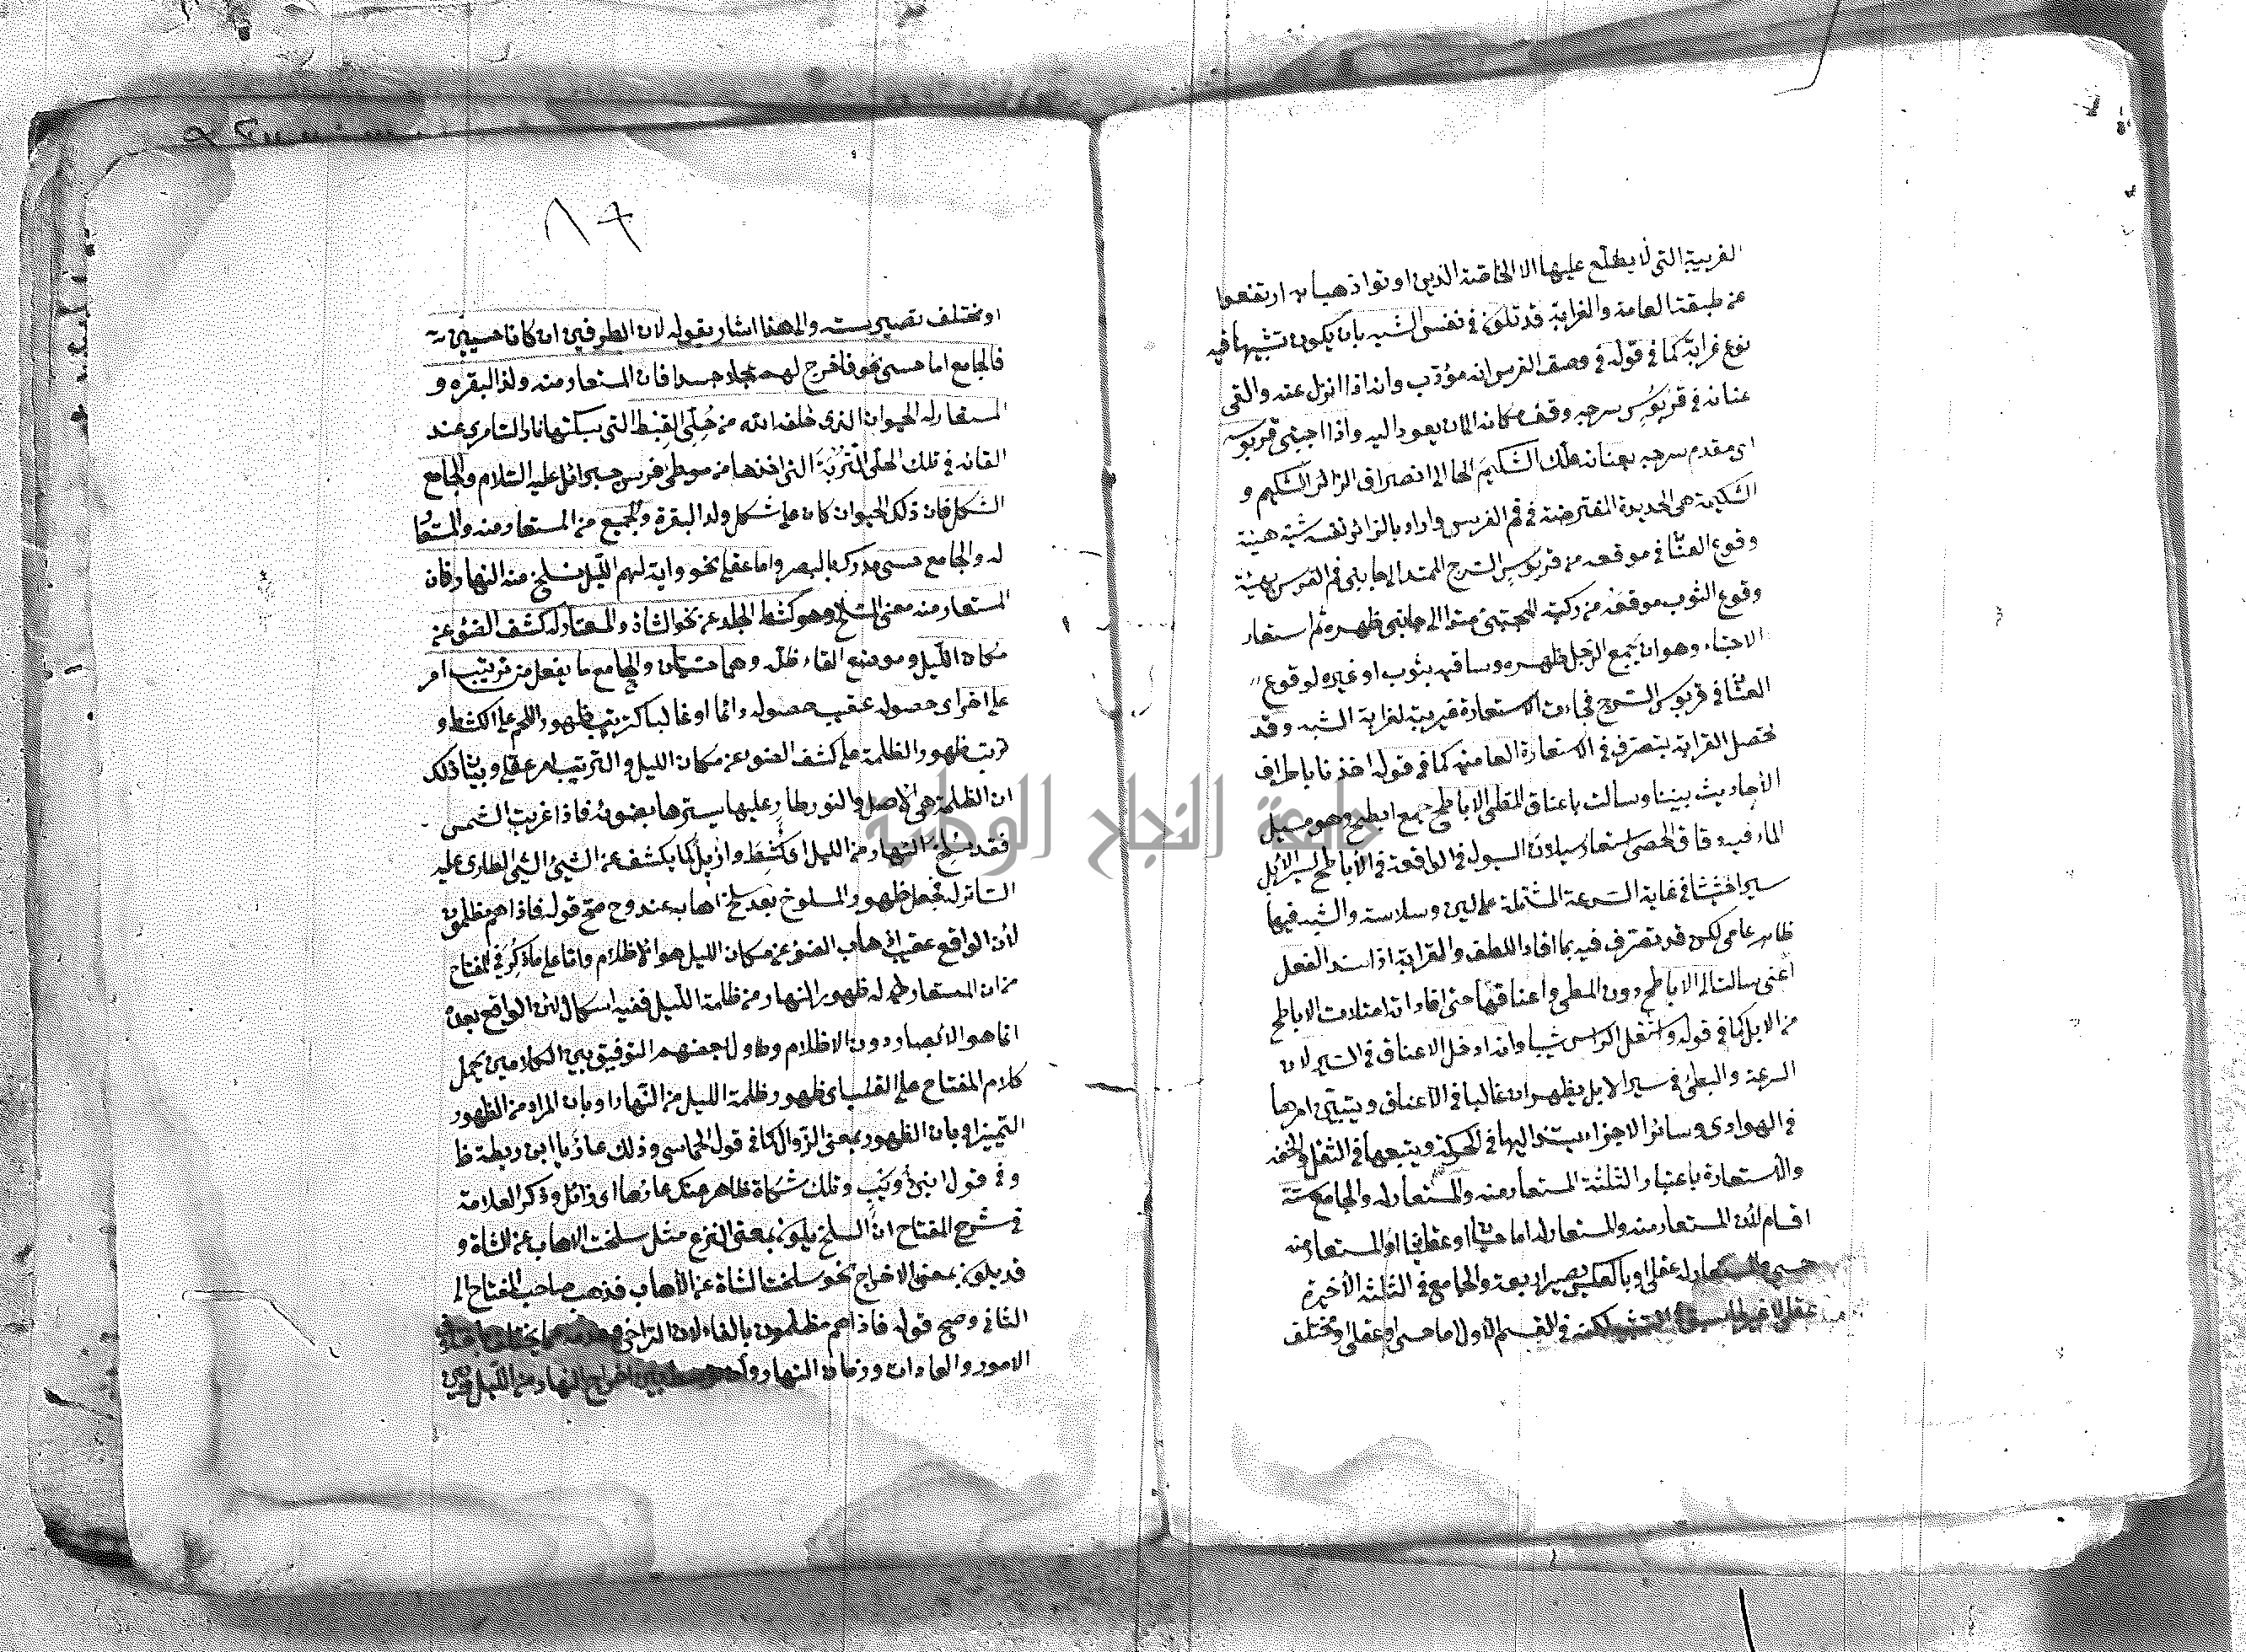 الغريبة التي لا يطلع عليها الا الخاصة الذين اوتوا ذهنا به ارتفعوا
عن طبقة العامة والغرابة قد تكون في نفس الشبه بان يكون تشبيها فيه
نوع غرابة كما في قوله في وصف الفرس انه مؤدب وانه اذا انزل عنه والقى
عنانه في قربوس سرجه وقف مكانه الى ان يعود اليه واذا احتبى قربوسه
اى مقدم سرجه بعنانه علك الشكيم الى انصراف الزائر الشكيم و
الشكيمة هى الحديدة المعترضة في فم الفرس واراد بالزائر نفسه شبه هيئة
وقوع العنان في موقعه من قربوس السرج ممتدا الى جانبى فم الفرس بهيئة
وقوع الثوب موقعه من ركبة المحتبى ممتدا الى جانبى ظهره ثم استعار
الاحتباء وهو ان يجمع الرجل ظهره وساقيه بثوب او غيره لوقوع
العنان في قربوس السرج فجاءت الاستعارة غريبة لغرابة الشبه وقد
تحصل الغرابة بتصرف في الاستعارة العامية كما في قوله اخذنا باطراف
الأحاديث بيننا وسالت باعناق المطى الاباطح جمع ابطح وهو مسيل
الماء فيه دقاق الحصى استعار سيلان السيول في الواقعة في الأباطح لسير الابل
سيرا حثيثا في غاية السرعة المشتملة على لين وسلاسة والشبه فيها
ظاهر عامى لكن قد تصرف فيه بما افاد اللطف والغرابة اذا اسند الفعل
أعنى سالت الى الاباطح دون المطى واعناقها حتى افاد انه امتلات الاباطح
من الابل كما في قوله واشتعل الراس شيبا وانه ادخل الاعناق في السير لان
السرعة والبطئ في سير الابل يظهر ان غالبا في الأعناق ويتبين امرها
في الهوادى وسائر الاجزاء يستند اليها في الحركة ويتبعها في الثقل والخفة
والأستعارة باعتبار الثلثة المستعار منه والمستعار له والجامع ستة
اقسام لأن المستعار منه والمستعار له اما حسيا او عقليا او المستعار منه
حسى والمستعار له عقلى او بالعكس يصير اربعة والجامع في الثلثة الأخيرة
عقلى لا غير لكنه في القسم الأول اما حسى او عقلى او مختلف
٨٢
او مختلف تصير ستة والى هذا اشار بقوله لان الطرفين ان كانا حسيين
فالجامع اما حسى نحو فاخرج لهم عجلا جسدا فان المستعار منه ولد البقره و
المستعار له الحيوان الذى خلقه الله من حلى القبط التى سبكتها نار السامرى عند
القائه في تلك الحلى التربة التى اخذها من موطئ فرس جبرائل عليه السلام والجامع
الشكل فان ذلك الحيوان كان على شكل ولد البقرة والجميع من المستعار منه والمستعار
له والجامع حسى مدرك بالبصر واما عقلى نحو واية لهم الليل نسلخ منه النهار فان
المستعار منه معنى السلخ وهو كشط الجلد عن نحو الشاة والمستعار له كشف الضوء عن
مكان الليل وموضع القاء ظله وهما حسيان والجامع ما يعقل من ترتيب امر
على اخر اى حصوله عقيب حصوله دائما او غالبا كترتيب ظهور اللحم على الكشط و
ترتب ظهور الظلمة على كشف الضوء عن مكان الليل والترتيب امر عقلى وبيان ذلك
ان الظلمة هى الاصل والنور طار عليها يسترها بضوئه فاذا غربت الشمس
فقد سلخ النهار من الليل اى كشط وازيل كما يكشف عن الشيئ الشيئ الطارى عليه
الساتر له فجعل ظهور المسلوخ بعد سلخ اهاب عنه وح صح قوله فاذا هم مظلمون
لأن الواقع عقيب اذهاب الضوء عن مكان الليل هو الاظلام واما على ما ذكر في المفتاح
من ان المستعار له ظهور النهار من ظلمة الليل ففيه اشكال لأن الواقع بعده
انما هو الابصار دون الاظلام وحاول بعضهم التوفيق بين الكلامين بحمل
كلام المفتاح على القلب اى ظهور ظلمة الليل من النهار او بان المراد من الظهور
التميز او بان الظهور بمعنى الزوال كما في قول الحماسى وذلك عار يا ابن ريطة ظا
و في قول ابى ذؤيب وتلك شكاة ظاهر عنك عارها اى زائل وذكر العلامة
في شرح المفتاح ان السلخ يكون بمعنى النزع مثل سلخت الاهاب عن الشاة و
قد يكون بمعنى الاخراج نحو سلخت الشاة عن الأهاب فذهب صاحب المفتاح الى
الثانى وصح قوله فاذا هم مظلمون بالفاء لان التراخى
الامور والعادات وزمان النهار اخراج النهار من الليل
جامعة النجاح الوطنية